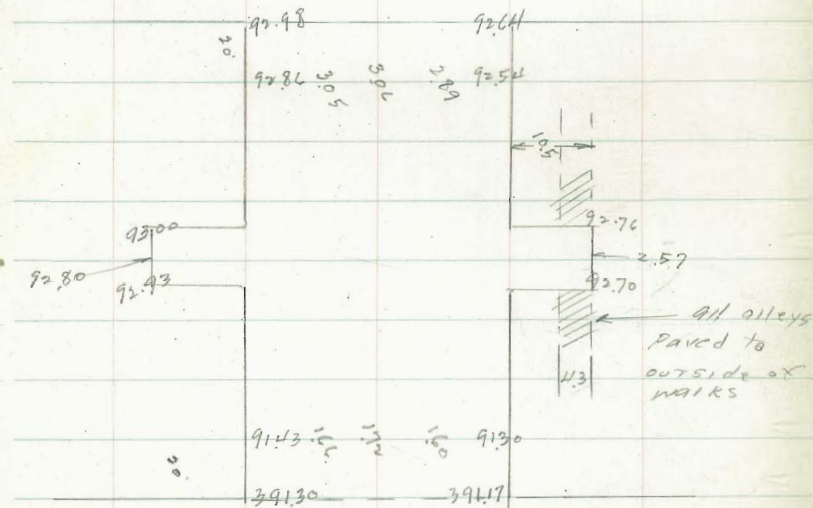 92.98 92.64
20'
92.86 3.05 3.06 2.89 92.54
10.5
93.00 92.76
92.80 2.57
92.93 92.70
All alleys
Paved to
outside of
walks
4.3
91.43 1.66 1.72 1.60 91.30
20'
391.30 391.17